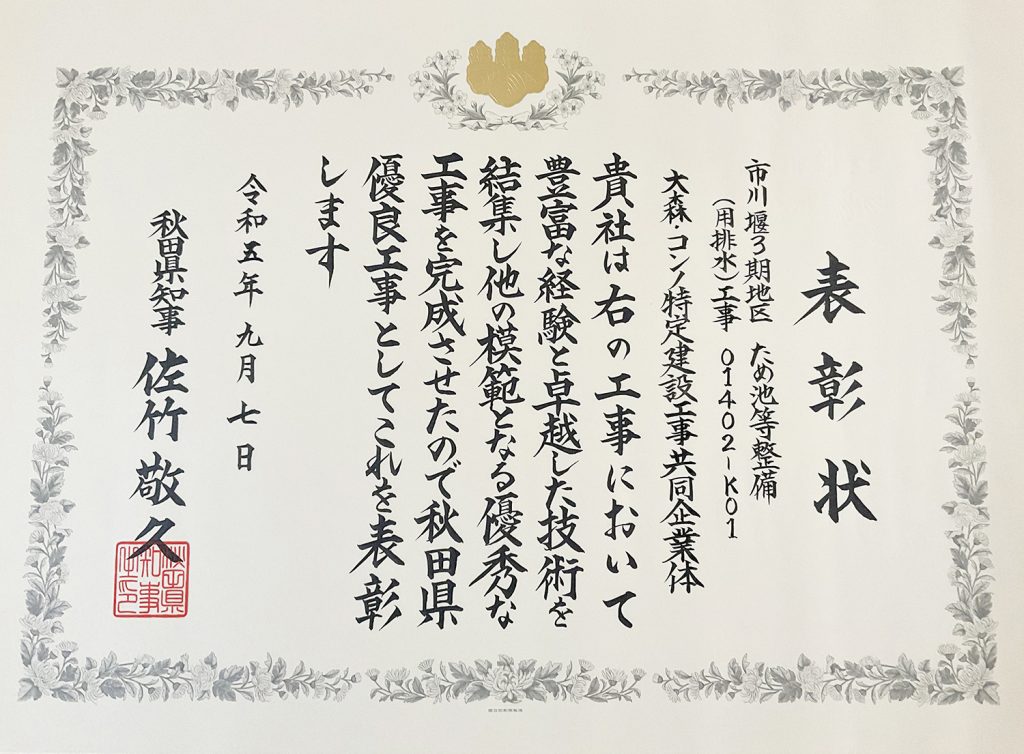 表彰状
市川堰3期地区 ため池等整備
(用排水)工事 01402-K01
大森・コンノ特定建設工事共同企業体
貴社は右の工事において
豊富な経験と卓越した技術を
結集し他の模範となる優秀な
工事を完成させたので秋田県
優良工事としてこれを表彰
します
令和五年九月七日
秋田県知事 佐竹敬久